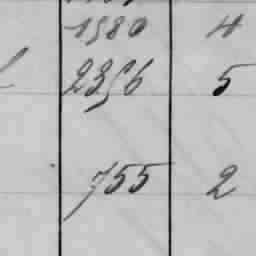 1980 4
2356 5
755 2